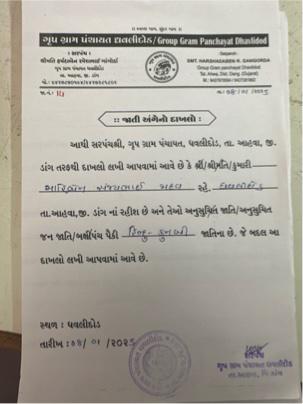 ગૃપ ગ્રામ પંચાયત ધવલીદોડ/Group Gram Panchayat Dhavlidod
: સરપંચ :
-: Sarpanch :-
SMT. HARSHADABEN R. GANGORDA
Group Gram Panchayat Dhavlidod
Tal. Ahwa, Dist. Dang. (Gujarat)
:: જાતી અંગેનો દાખલો ::
આથી સરપંચશ્રી, ગૃપ ગ્રામ પંચાયત, ધવલીદોડ, તા. આહવા, જી.
ડાંગ તરફથી દાખલો લખી આપવામાં આવે છે કે શ્રી/શ્રીમતિ/કુમારી
રહે. ધવલીદોડ
તા.આહવા,જી.ડાંગ નાં રહીશ છે અને તેઓ અનુસુચિત જાતિ/અનુસુચિત
જન જાતિ/બક્ષીપંચ પૈકી હિન્દુ-કુનબી જાતિના છે. જે બદલ આ
દાખલો લખી આપવામાં આવે છે.
સ્થળ : ધવલીદોડ
તારીખ : ૦૪/ ૦૧ /૨૦૨૬
સરપંચ
ગૃપ ગ્રામ પંચાયત ધવલીદોડ
તા.આહવા, જિ.ડાંગ